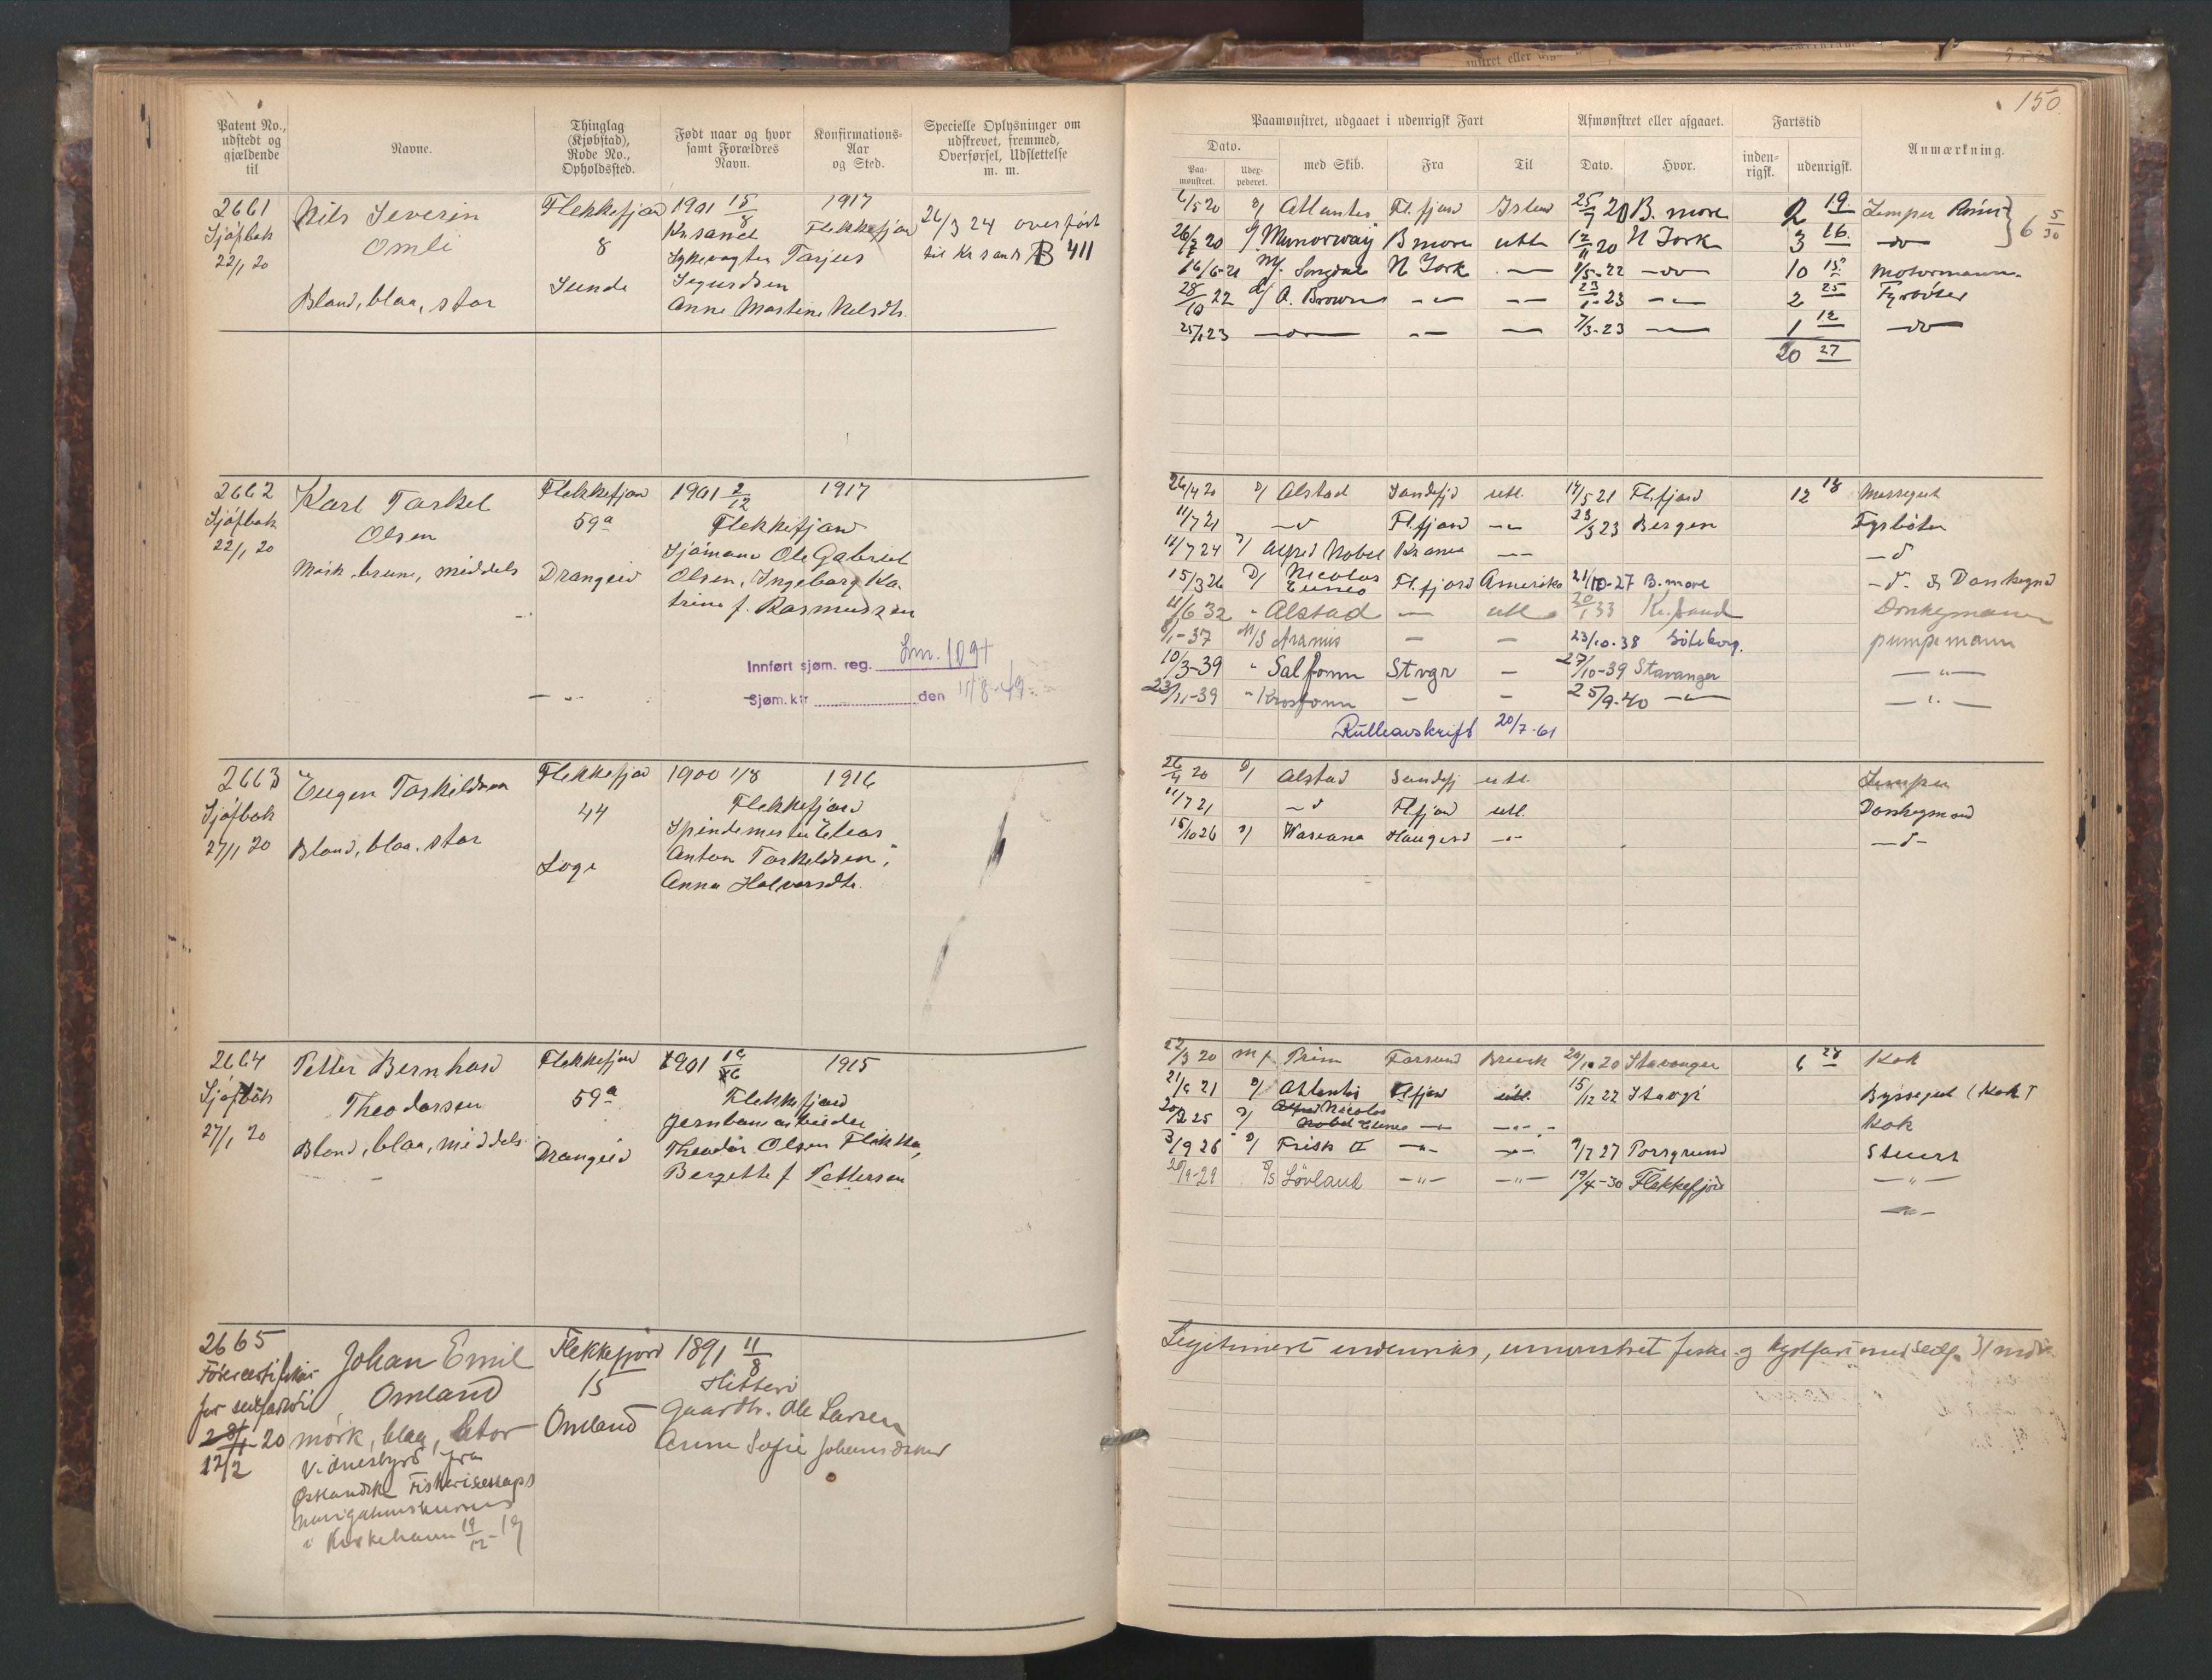 150.
Patent No., udstedt og gjældende til
Navne.
Thinglag (Kjøbstad), Rode No., Opholdssted.
Født naar og hvor samt Forældres Navn.
Konfirmations-Aar og Sted.
Specielle Oplysninger om udskrevet, fremmed, Overførsel, Udslettelse m. m.
2661
Sjöfbok
22/1 20
Nils Severin
Omli
Bland, blaa, stor
Flekkefjord
8
Sunde
1901 15/8
Krsand
Sykevogter Tarjus
Sigurdsen
Anne Martine Nelsdtr.
1917
Flekkefjord
26/3 24 overført
til Krsands B 411
2662
Sjöfbok
22/1 20
Karl Torkel
Olsen
Mörk, brune, middels
Flekkefjord
59a
Drangeid
1901 2/12
Flekkefjord
Sjömann Ole Gabriel
Olsen, Ingeborg Ka-
trine f. Rasmussen
1917
Innført sjøm. reg. Lnr. 1094
Sjøm.ktr den 11/8-49
2663
Sjöfbok
27/1 20
Eugen Torkildsen
Bland, blaa, stor
Flekkefjord
44
Loge
1900 1/8
Flekkefjord
Spindemester Elias
Anton Torkeldsen,
Anna Halvorsdtr.
1916
2664
Sjöfbok
27/1 20
Petter Bernhard
Theodorsen
Bland, blaa, middels
Flekkefjord
59a
Drangeid
1901
Flekkefjord
Jernbanearbeider
Theodor Olsen Flikka,
Bergette f Pettersen
1915
2665
for
28/1-20
12/2
Johan Emil
Omland
mörk, blaa, stor
Vidnesbyrd fra
Fiskeriselskaps
i 19/12-19
Flekkefjord
15
Omland
1891 11/8
Hitterö
Gaardbr. Ole Larsen
Anne Sofie
Paamønstret, udgaaet i udenrigsk Fart
Afmønstret eller afgaaet.
Fartstid
Anmærkning.
Dato.
Paa-mønstret.
Udex-pederet.
med Skib.
Fra
Til
Dato.
Hvor.
inden-rigsk.
udenrigsk.
6/5 20 D/ Atlantis Fl.fjord Island 25/7 20 B. more 2 19 Lemper
26/7 20 Munorway B more utl 12/11 20 N York 3 16 —do— 6 5/30
16/6-21 M/ Songdal N York — 1/5-22 —do— 10 15 Motormann
28/10 22 D/ A. Brown —"— —"— 23/1-23 —"— 2 25 Fyrböter
25/1 23 —do— —"— — 7/3-23 — 1 12 —do—
20 27
26/4 20 D/ Alstad Sandefjd utl. 14/5 21 Fl.fjord 12 18 Messegut
11/7 21 —d Fl.fjord —"— 23/3 23 Bergen Fyrböter
11/7 24 D/ Alfred Nobel —"— —d
15/3 26 D/ Nicolas Cuneo Fl.fjord Amerika 21/10-27 B.more —d— & Donkeymd
11/6 32 " Alstad — utl 20/1 33 Kr.sand Donkeymann
8/1-37 M/S Aramis — — 23/10-38 Göteborg. pumpemann
10/3-39 " Salfonn Stvgr — 27/10-39 Stavanger —"—
23/11-39 " Krosfonn — — 25/9-40 —"— —"—
Rulleavskrift 20/7-61
26/4 20 D/ Alstad Sandefj utl. Lemper
11/7 21 —d Fl.fjord utl. Donkeymand
15/10 26 D/ Haugesd —"— —d—
22/3 20 Prim Farsund Brevik 20/10 20 Stavanger 6 28 Kok
21/6 21 D/ Atlantis Flfjord utl. 15/12 22 Byssegut (Kok)
D/ Alfred Nobel Nicolas Cuneo —"— —"— Kok
3/9 26 D/ Frisk II —"— —"— 9/7 27 Porsgrund Stuert
20/9-29 D/S Lövland —"— —"— 19/4-30 Flekkefjord —"—
—"—
Legitimert indenriks, fiske og kystfart med